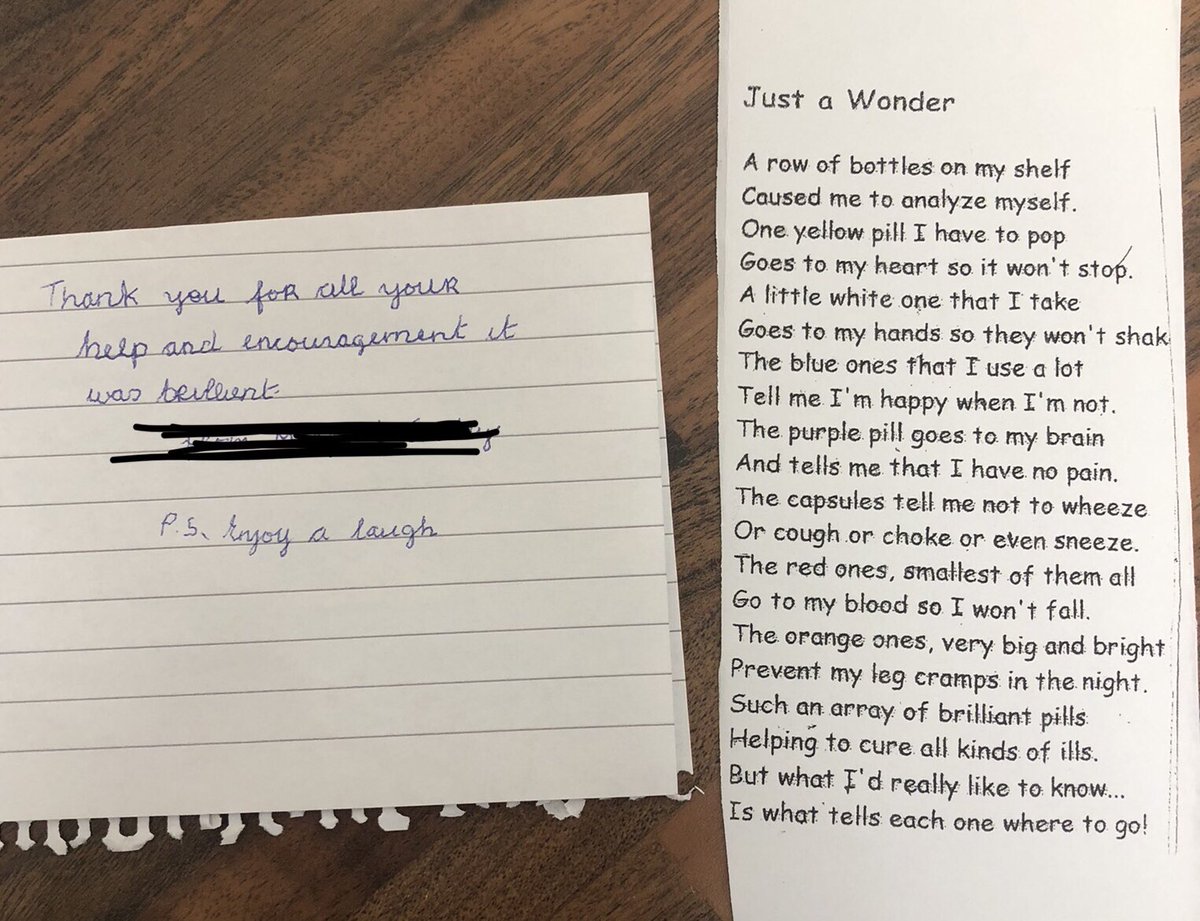 Thank you for all your
help and encouragement it
was brillient
P.S. Enjoy a laugh
Just a Wonder
A row of bottles on my shelf
Caused me to analyze myself.
One yellow pill I have to pop
Goes to my heart so it won't stop.
A little white one that I take
Goes to my hands so they won't shak
The blue ones that I use a lot
Tell me I'm happy when I'm not.
The purple pill goes to my brain
And tells me that I have no pain.
The capsules tell me not to wheeze
Or cough or choke or even sneeze.
The red ones, smallest of them all
Go to my blood so I won't fall.
The orange ones, very big and bright
Prevent my leg cramps in the night.
Such an array of brilliant pills
Helping to cure all kinds of ills.
But what I'd really like to know...
Is what tells each one where to go!